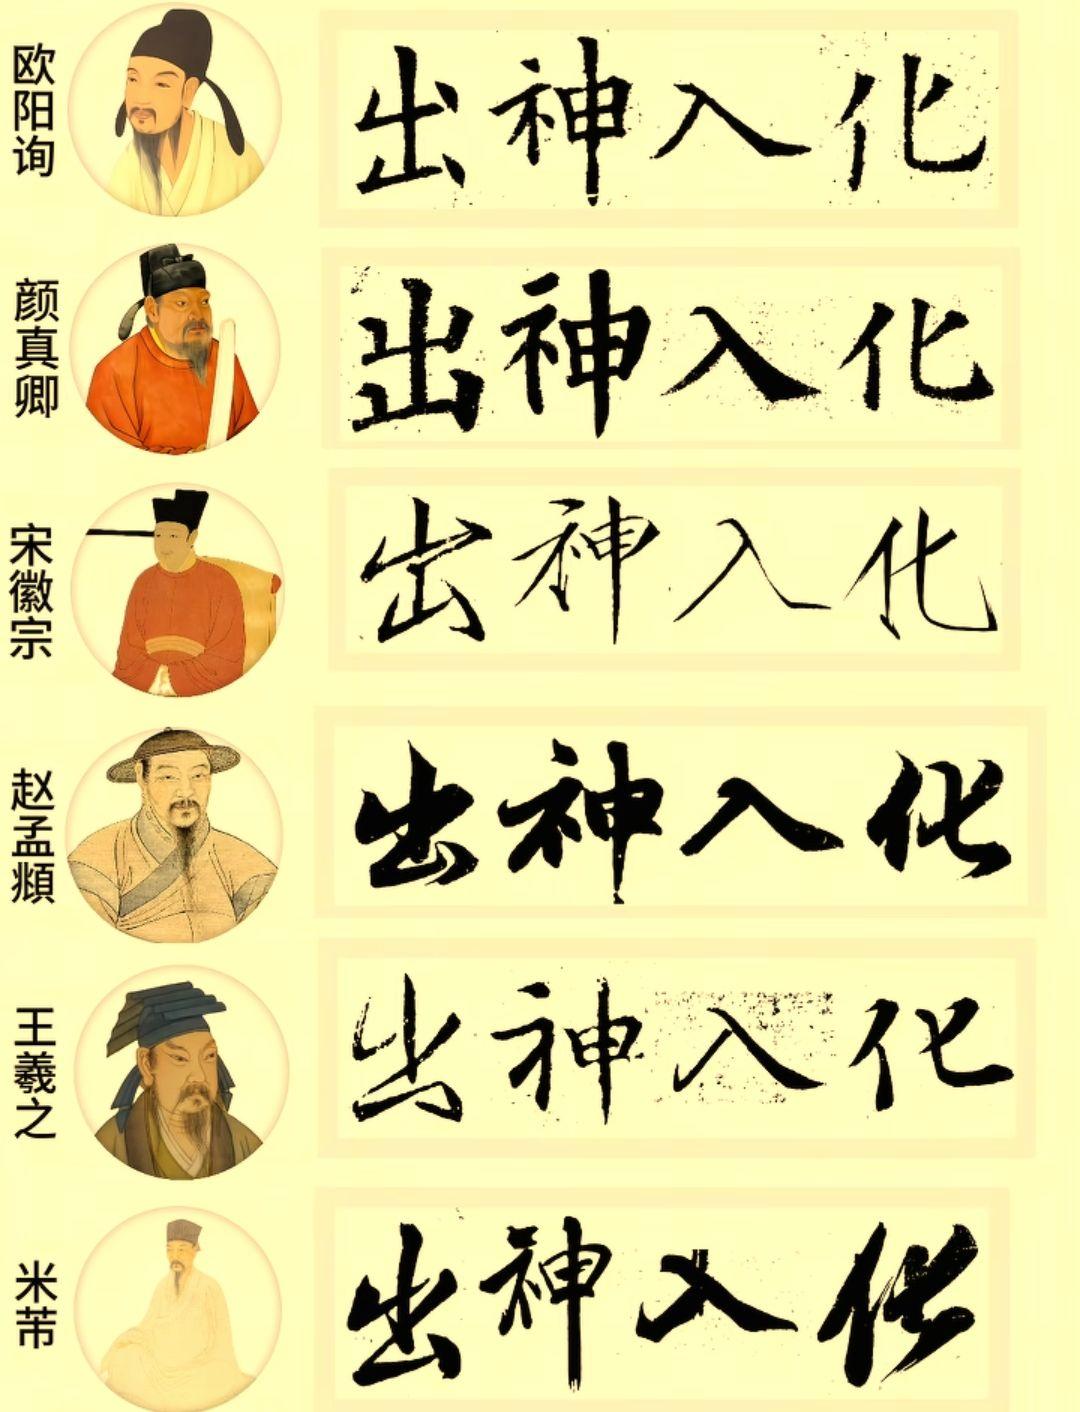 欧阳询
出神入化
颜真卿
出神入化
宋徽宗
出神入化
赵孟頫
出神入化
王羲之
出神入化
米芾
出神入化